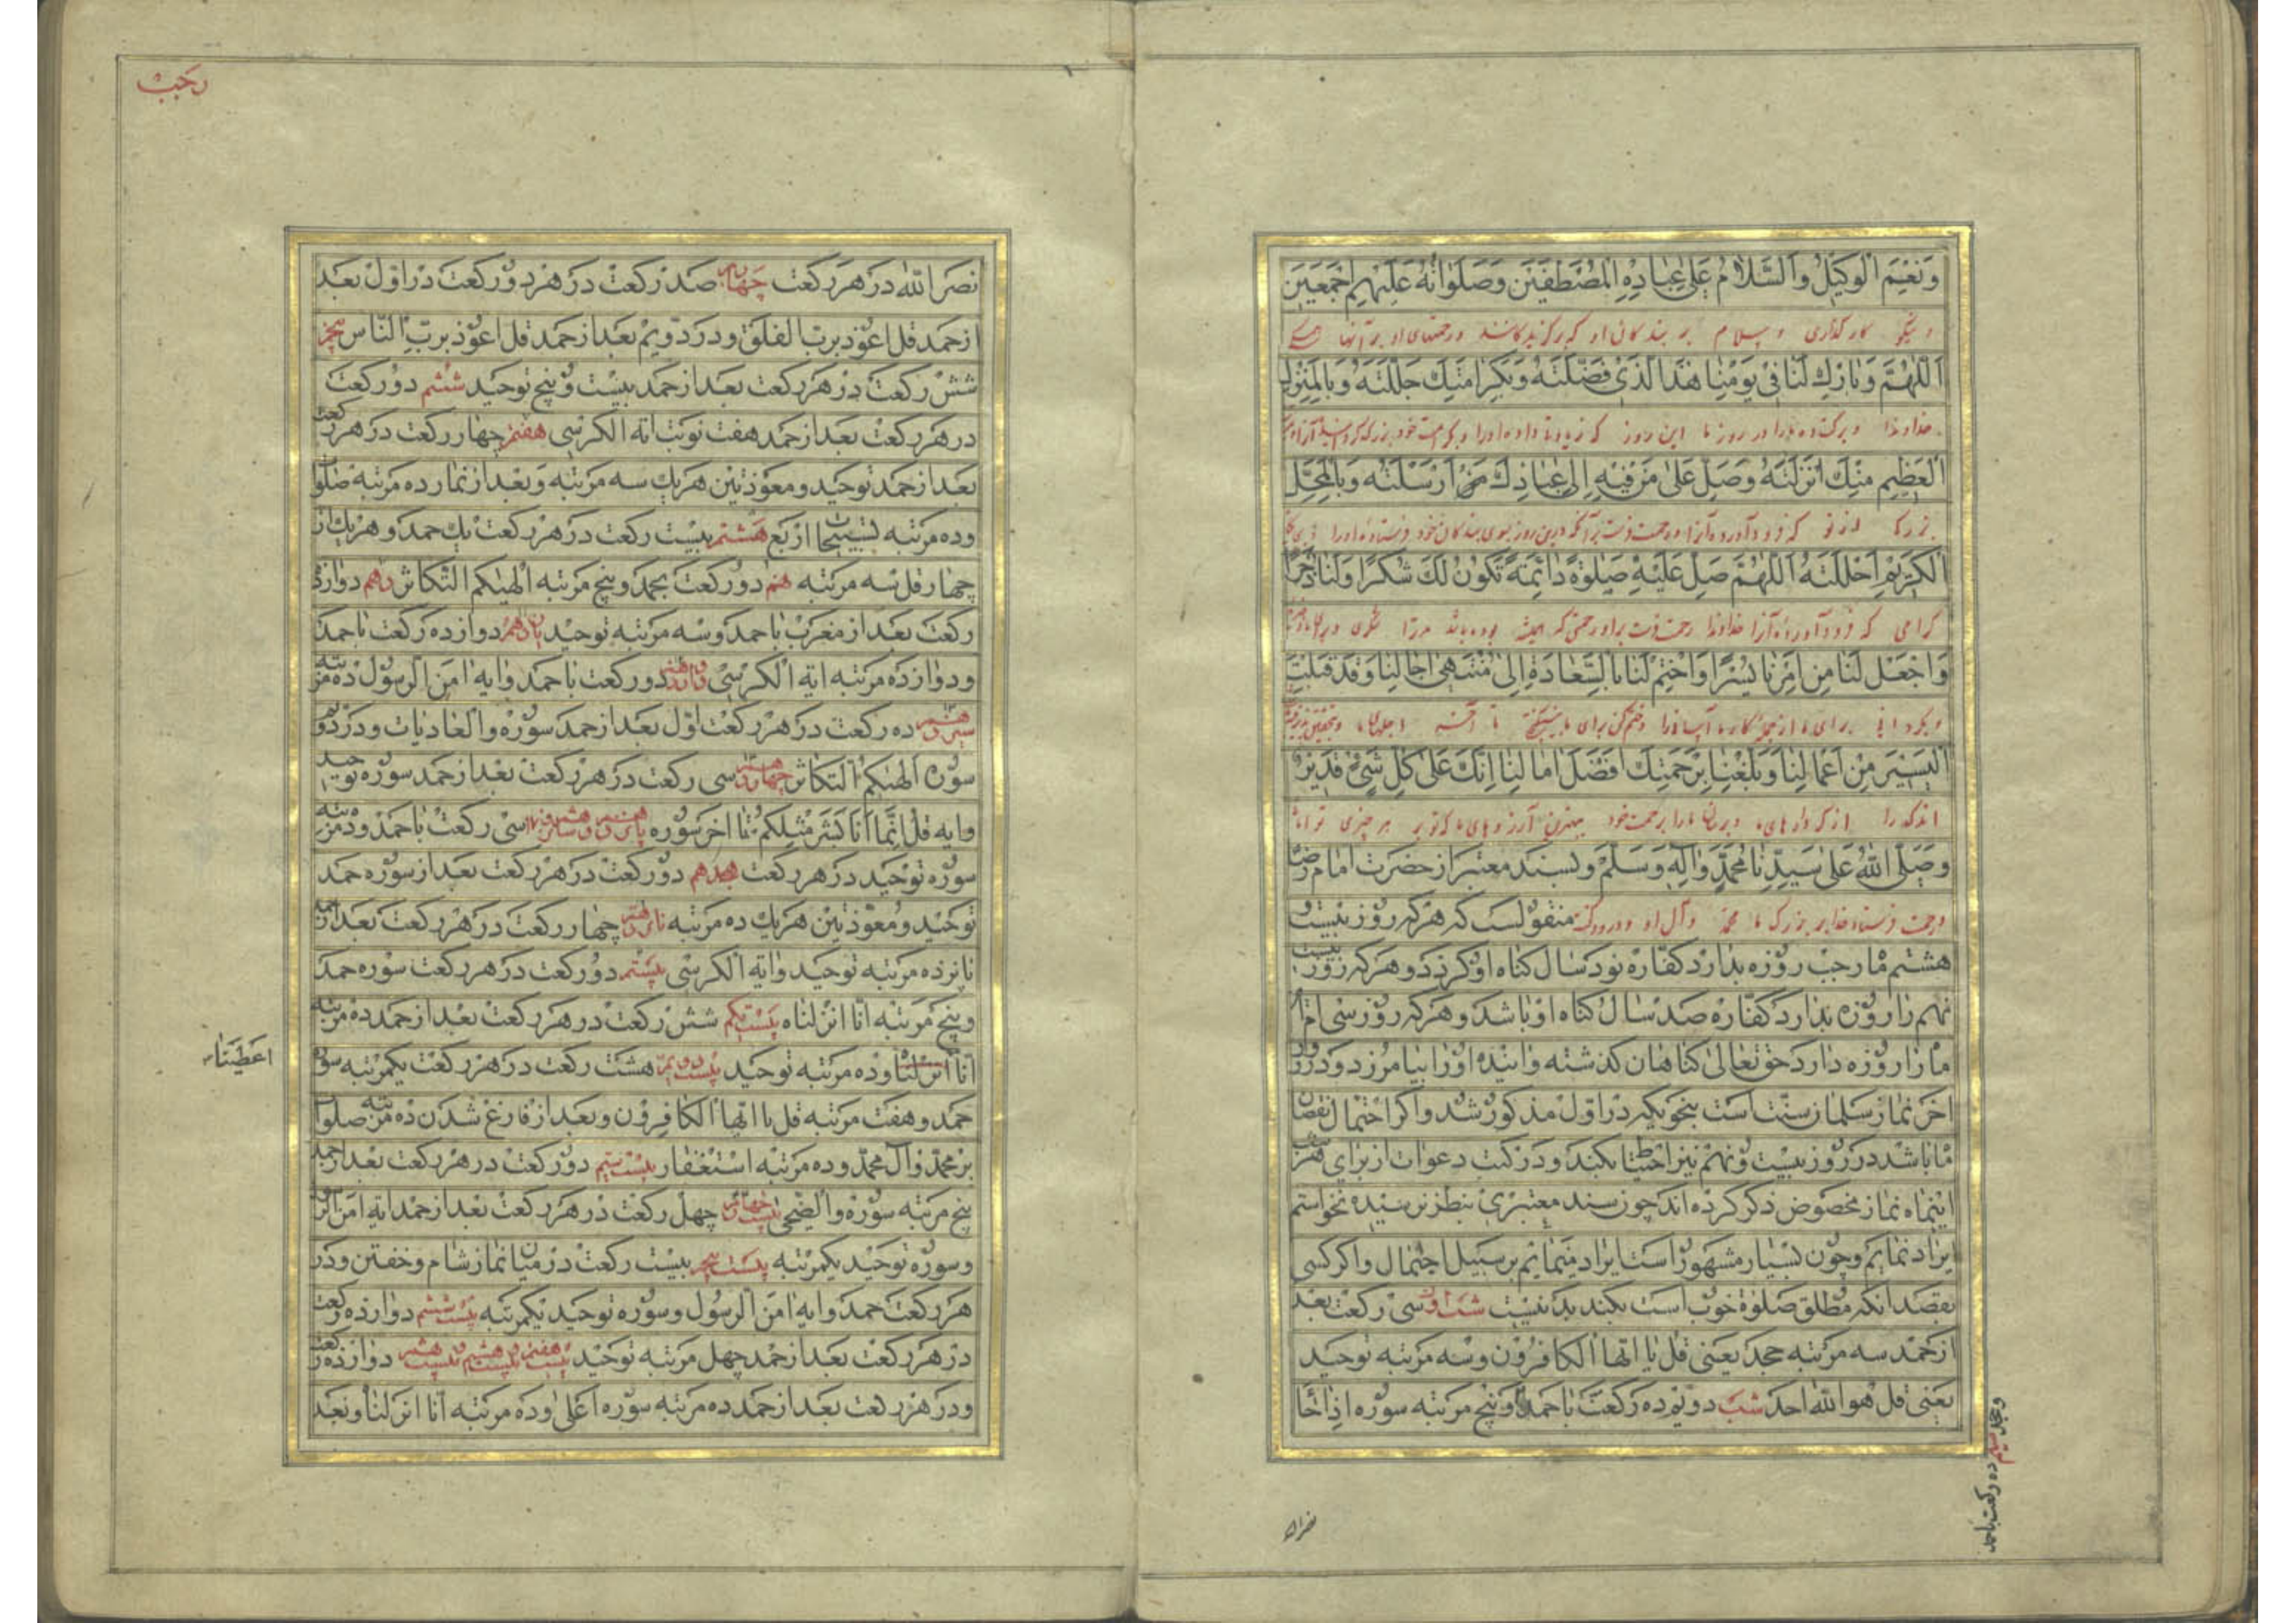 وَنِعْمَ الْوَكيلُ وَالسَّلامُ عَلى عِبادِهِ الْمُصْطَفَيْنَ وَصَلَواتُهُ عَلَيْهِمْ اَجْمَعينَ
و نیکو کار گذاری و سلام بر بندگان او که برگزیدگانند و رحمتهای او بر آنها همگی
اَللّهُمَّ وَبارِكْ لَنا فى يَوْمِنا هذَا الَّذى فَضَّلْتَهُ وَبِكَرامَتِكَ جَلَّلْتَهُ وَبِالْمَنْزِلِ
خداوندا و برکت ده ما را در روز ما این روز که زیادتی داده او را و بکرامت خود
الْعَظيمِ مِنْكَ اَنْزَلْتَهُ وَصَلِّ عَلى مَنْ فيهِ اِلى عِبادِكَ اَرْسَلْتَهُ وَبِالْمَحَلِّ
بزرگ از تو که فرود آورده آنرا و رحمت فرست بر آنکه درین روز بسوی بندگان خود فرستاده او را
الْكَريمِ اَحْلَلْتَهُ اَللّهُمَّ صَلِّ عَلَيْهِ صَلوةً دائِمَةً تَكُونُ لَكَ شُكْرًا وَلَنا ذُخْرًا
گرامی که فرود آورده آنرا خداوندا رحمت فرست بر او رحمتی که همیشه بوده باشد مر ترا شکری
وَاجْعَلْ لَنا مِنْ اَمْرِنا يُسْرًا وَاخْتِمْ لَنا بِالسَّعادَةِ اِلى مُنْتَهى اجالِنا وَقَدْ قَبِلْتَ
و بگردان برای ما از کار ما آسانی را و ختم کن برای ما تا آخر اجلهای ما
الْيَسيرَ مِنْ اَعْمالِنا وَبَلَّغْتَنا بِرَحْمَتِكَ اَفْضَلَ امالِنا اِنَّكَ عَلى كُلِّ شَىْءٍ قَديرٌ
اندک را از کردارهای ما و برسانی ما را برحمت خود بهترین آرزوهای ما که تو بر هر چیزی توانا
وَصَلَّى اللهُ عَلى سَيِّدِنا مُحَمَّدٍ وَآلِهِ وَسَلَّمَ وبسند معتبر از حضرت امام رضا
و رحمت فرستد خدا بر بزرگ ما محمد و آل او و درود منقولست که هر که روز بیست و
هشتم ماه رجب روزه بدارد کفاره نود سال کناه او کردد و هر که روز بیست
نهم را روزه بدارد کفاره صد سال کناه او باشد و هر که روز سی ام
ماه را روزه دارد حق تعالی کناهان کذشته و آینده او را بیامرزد و در روز
آخر نماز سلمان سنت است بنحویکه در اول مذکور شد و اکر احتمال نقصان
ماه باشد در روز بیست و نهم نیز احتیاطا بکند و در کتب دعوات از برای هر شب
اینماه نماز مخصوص ذکر کرده اند چون سند معتبری بنظر نرسیده نخواستم
ایراد نمایم و چون بسیار مشهور است ایراد مینمایم بر سبیل اجمال و اکر کسی
بقصد آنکه مطلق صلوة خوب است بکند بد نیست شب اول سی رکعت بعد
از حمد سه مرتبه جحد یعنی قل یا ایها الکافرون و سه مرتبه توحید
یعنی قل هو الله احد شب دویم ده رکعت با حمد و پنج مرتبه سوره اذا جاء
وجحد سیم ده رکعت با حمد
نصر الله
رجب
نصر الله در هر رکعت چهارم صد رکعت در هر دو رکعت در اول بعد
از حمد قل اعوذ برب الفلق و در دویم بعد از حمد قل اعوذ برب الناس پنجم
شش رکعت در هر رکعت بعد از حمد بیست و پنج توحید ششم دو رکعت
در هر رکعت بعد از حمد هفت نوبت آیة الکرسی هفتم چهار رکعت در هر رکعت
بعد از حمد توحید و معوذتین هر یک سه مرتبه و بعد از نماز ده مرتبه صلوات
و ده مرتبه تسبیحات اربع هشتم بیست رکعت در هر رکعت یک حمد و هر یک از
چهار قل سه مرتبه نهم دو رکعت بحمد و پنج مرتبه الهیکم التکاثر دهم دوازده
رکعت بعد از مغرب با حمد و سه مرتبه توحید یازدهم دوازده رکعت با حمد
و دوازده مرتبه آیة الکرسی دوازدهم دو رکعت با حمد و آیه امن الرسول ده مرتبه
سیزدهم ده رکعت در هر رکعت اول بعد از حمد سوره والعادیات و در دویم
سوره الهیکم التکاثر چهاردهم سی رکعت در هر رکعت بعد از حمد سوره توحید
و آیه قل انما انا بشر مثلکم تا آخر سوره پانزدهم و شانزدهم سی رکعت با حمد و ده مرتبه
سوره توحید در هر رکعت هجدهم دو رکعت در هر رکعت بعد از سوره حمد
توحید و معوذتین هر یک ده مرتبه نوزدهم چهار رکعت در هر رکعت بعد از حمد
پانزده مرتبه توحید و آیة الکرسی بیستم دو رکعت در هر رکعت سوره حمد
و پنج مرتبه انا انزلناه بیست یکم شش رکعت در هر رکعت بعد از حمد ده مرتبه
انا انزلنا و ده مرتبه توحید بیست دویم هشت رکعت در هر رکعت یکمرتبه سوره
اعطیناه
حمد و هفت مرتبه قل یا ایها الکافرون و بعد از فارغ شدن ده مرتبه صلوات
بر محمد و آل محمد و ده مرتبه استغفار بیست سیم دو رکعت در هر رکعت بعد از حمد
پنج مرتبه سوره والضحی بیست چهارم چهل رکعت در هر رکعت بعد از حمد آیه امن الرسول
و سوره توحید یکمرتبه بیست پنجم بیست رکعت در میان نماز شام و خفتن و در
هر رکعت حمد و آیه امن الرسول و سوره توحید یکمرتبه بیست ششم دوازده رکعت
در هر رکعت بعد از حمد چهل مرتبه توحید بیست هفتم و بیست هشتم و بیست نهم دوازده رکعت
و در هر رکعت بعد از حمد ده مرتبه سوره اعلی و ده مرتبه انا انزلنا و بعد